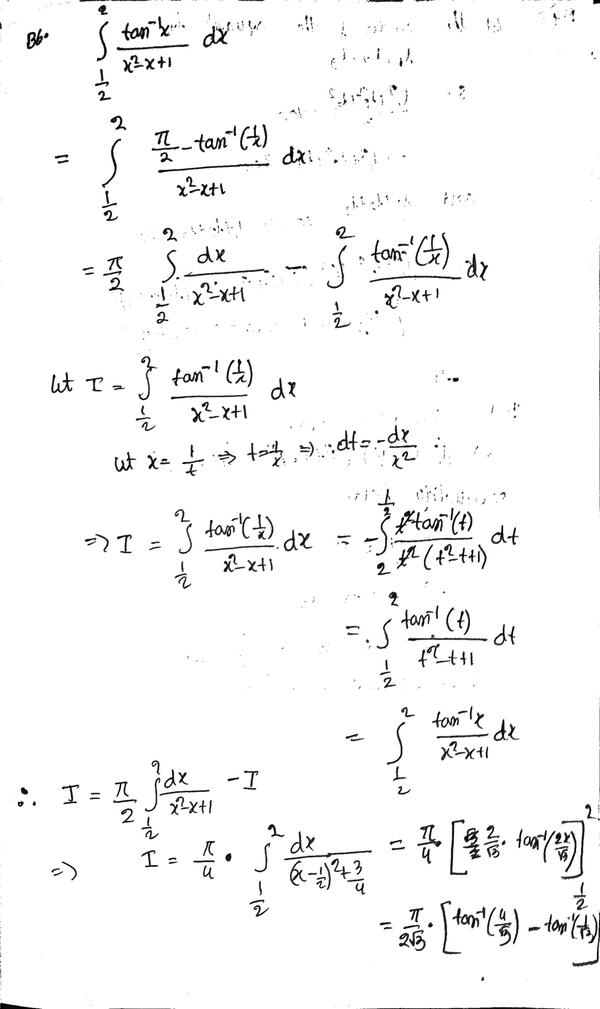 B6. ∫_{1/2}^{2} tan⁻¹x / (x²-x+1) dx
= ∫_{1/2}^{2} (π/2 - tan⁻¹(1/x)) / (x²-x+1) dx
= π/2 ∫_{1/2}^{2} dx / (x²-x+1) - ∫_{1/2}^{2} tan⁻¹(1/x) / (x²-x+1) dx
let I = ∫_{1/2}^{2} tan⁻¹(1/x) / (x²-x+1) dx
let x = 1/t ⇒ t = 1/x ⇒ ∴ dt = -dx/x²
⇒ I = ∫_{1/2}^{2} tan⁻¹(1/x) / (x²-x+1) dx = -∫_{2}^{1/2} t² tan⁻¹(t) / (t² (t²-t+1)) dt
= ∫_{1/2}^{2} tan⁻¹(t) / (t²-t+1) dt
= ∫_{1/2}^{2} tan⁻¹x / (x²-x+1) dx
∴ I = π/2 ∫_{1/2}^{2} dx / (x²-x+1) - I
⇒ I = π/4 · ∫_{1/2}^{2} dx / ((x-1/2)²+3/4) = π/4 · [2/√3 · tan⁻¹(2x/√3)]_{1/2}^{2}
= π/(2√3) · [tan⁻¹(4/√3) - tan⁻¹(1/√3)]